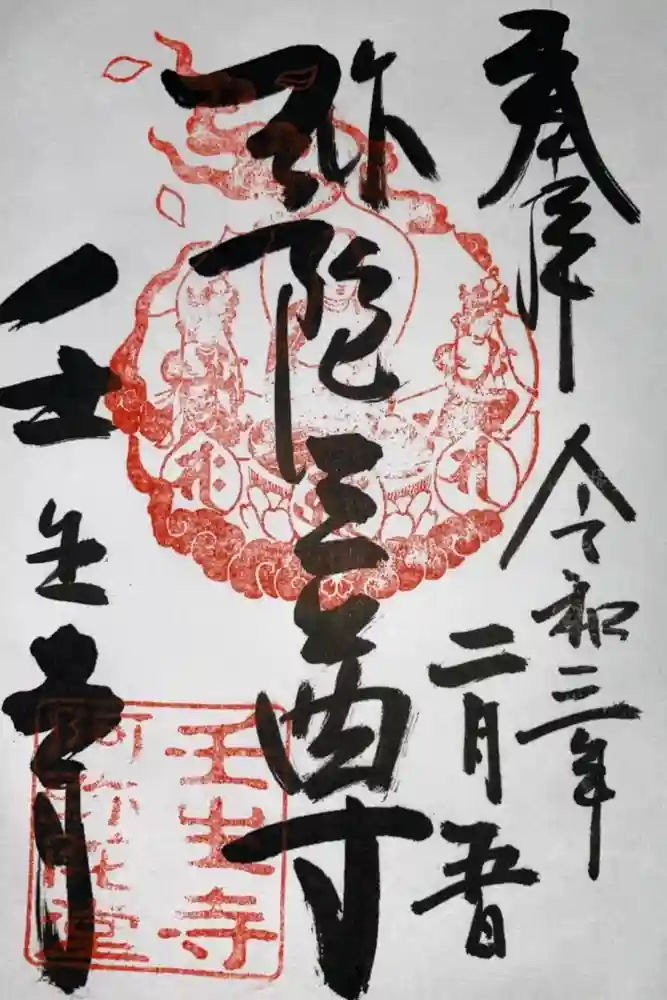 奉拝
令和三年
二月五日
弥陀三尊
壬生寺
壬生寺
阿弥陀堂